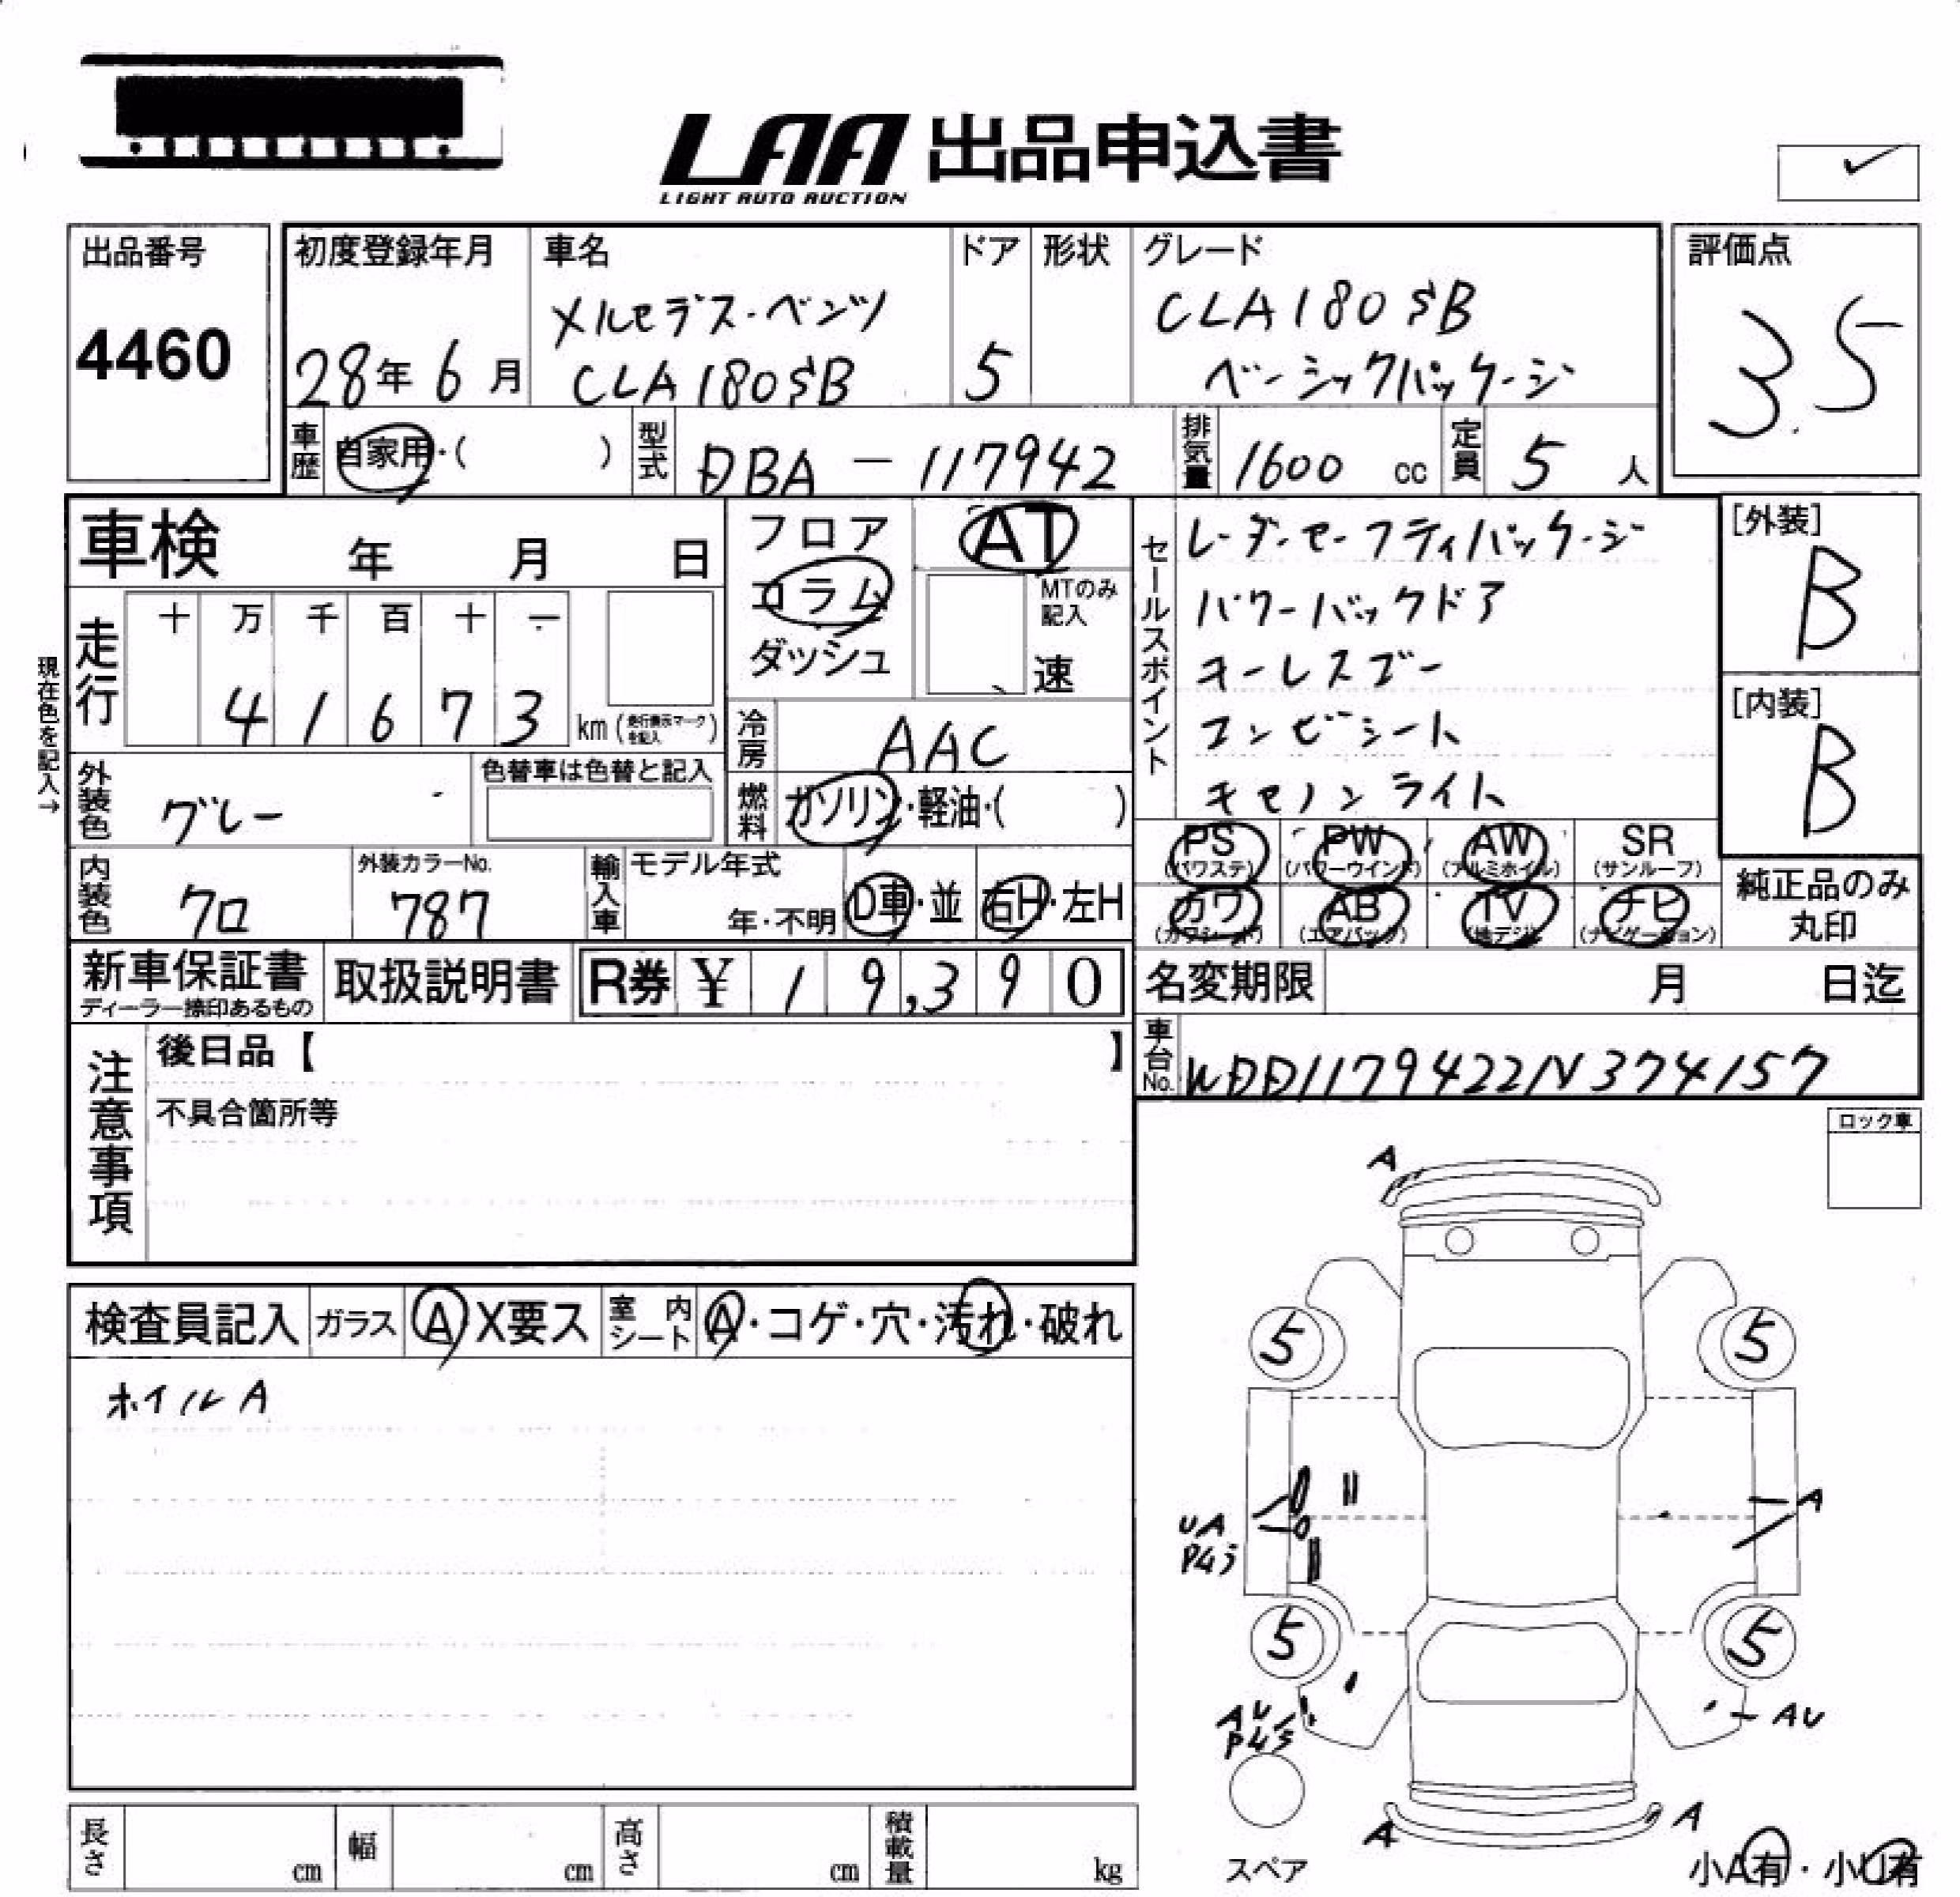 LAA 出品申込書
LIGHT AUTO AUCTION
出品番号
4460
初度登録年月
28年 6月
車名
メルセデス・ベンツ
CLA180SB
ドア
5
形状
グレード
CLA180SB
ベーシックパッケージ
評価点
3.5
車歴 自家用・( )
型式 DBA-117942
排気量 1600 cc
定員 5 人
車検 年 月 日
フロア
コラム
ダッシュ
AT
MTのみ
記入
速
セールスポイント
レーダーセーフティパッケージ
パワーバックドア
キーレスゴー
コンビシート
キセノンライト
[外装]
B
[内装]
B
現在色を記入→
走行
十 万 千 百 十 一
4 1 6 7 3 km (走行表示マークを記入)
冷房 AAC
外装色 グレー
色替車は色替と記入
燃料 ガソリン・軽油・( )
内装色 クロ
外装カラーNo.
787
輸入車 モデル年式
年・不明
D車・並
右H・左H
PS
(パワステ)
PW
(パワーウインド)
AW
(アルミホイル)
SR
(サンルーフ)
カワ
(カワシート)
AB
(エアバック)
TV
(地デジ)
ナビ
(ナビゲーション)
純正品のみ
丸印
新車保証書
ディーラー捺印あるもの
取扱説明書
R券 ¥ 1 9,3 9 0
名変期限 月 日迄
車台No. WDD1179422N374157
注意事項
後日品【 】
不具合箇所等
ロック車
検査員記入 ガラス A X要ス
室内シート A・コゲ・穴・汚れ・破れ
ホイルA
A
5 5
UA
P4j
A
5 5
AU
P4j
AU
A
A
スペア
小A有・小U有
長さ cm
幅 cm
高さ cm
積載量 kg